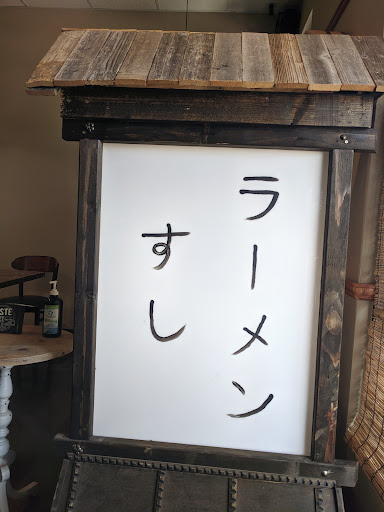 ラーメン
すし